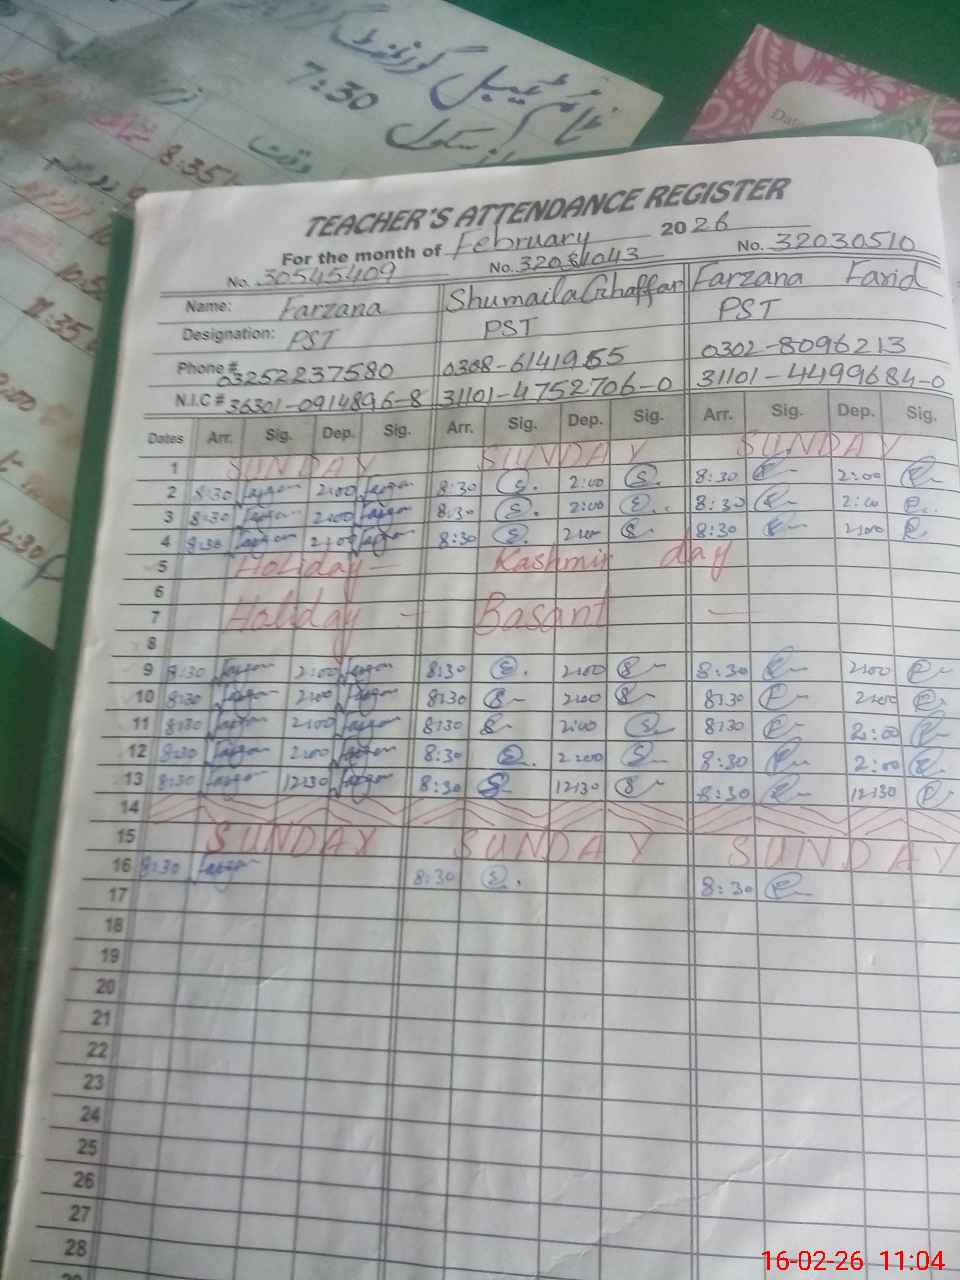 ٹائم ٹیبل گورنمنٹ
7:30
سکول
وقت
8:35
11:35
12:30
Date
TEACHER'S ATTENDANCE REGISTER
For the month of February 2026
No. 30545409 No. 32081043 No. 32030510
Name: Farzana Shumaila Ghaffar Farzana Farid
Designation: PST PST PST
Phone # 03252237580 0308-6141955 0302-8096213
N.I.C # 36301-0914896-8 31101-4752706-0 31101-4499684-0
Dates Arr. Sig. Dep. Sig. Arr. Sig. Dep. Sig. Arr. Sig. Dep. Sig.
1 SUNDAY SUNDAY SUNDAY
2 8:30 2:00 8:30 2:00 8:30 2:00
3 8:30 2:00 8:30 2:00 8:30 2:00
4 8:30 2:00 8:30 2:00 8:30 2:00
5 Holiday - Kashmir day
6
7 Holiday - Basant -
8
9 8:30 2:00 8:30 2:00 8:30 2:00
10 8:30 2:00 8:30 2:00 8:30 2:00
11 8:30 2:00 8:30 2:00 8:30 2:00
12 8:30 2:00 8:30 2:00 8:30 2:00
13 8:30 12:30 8:30 12:30 8:30 12:30
14
15 SUNDAY SUNDAY SUNDAY
16 8:30 8:30 8:30
17
18
19
20
21
22
23
24
25
26
27
28
16-02-26 11:04